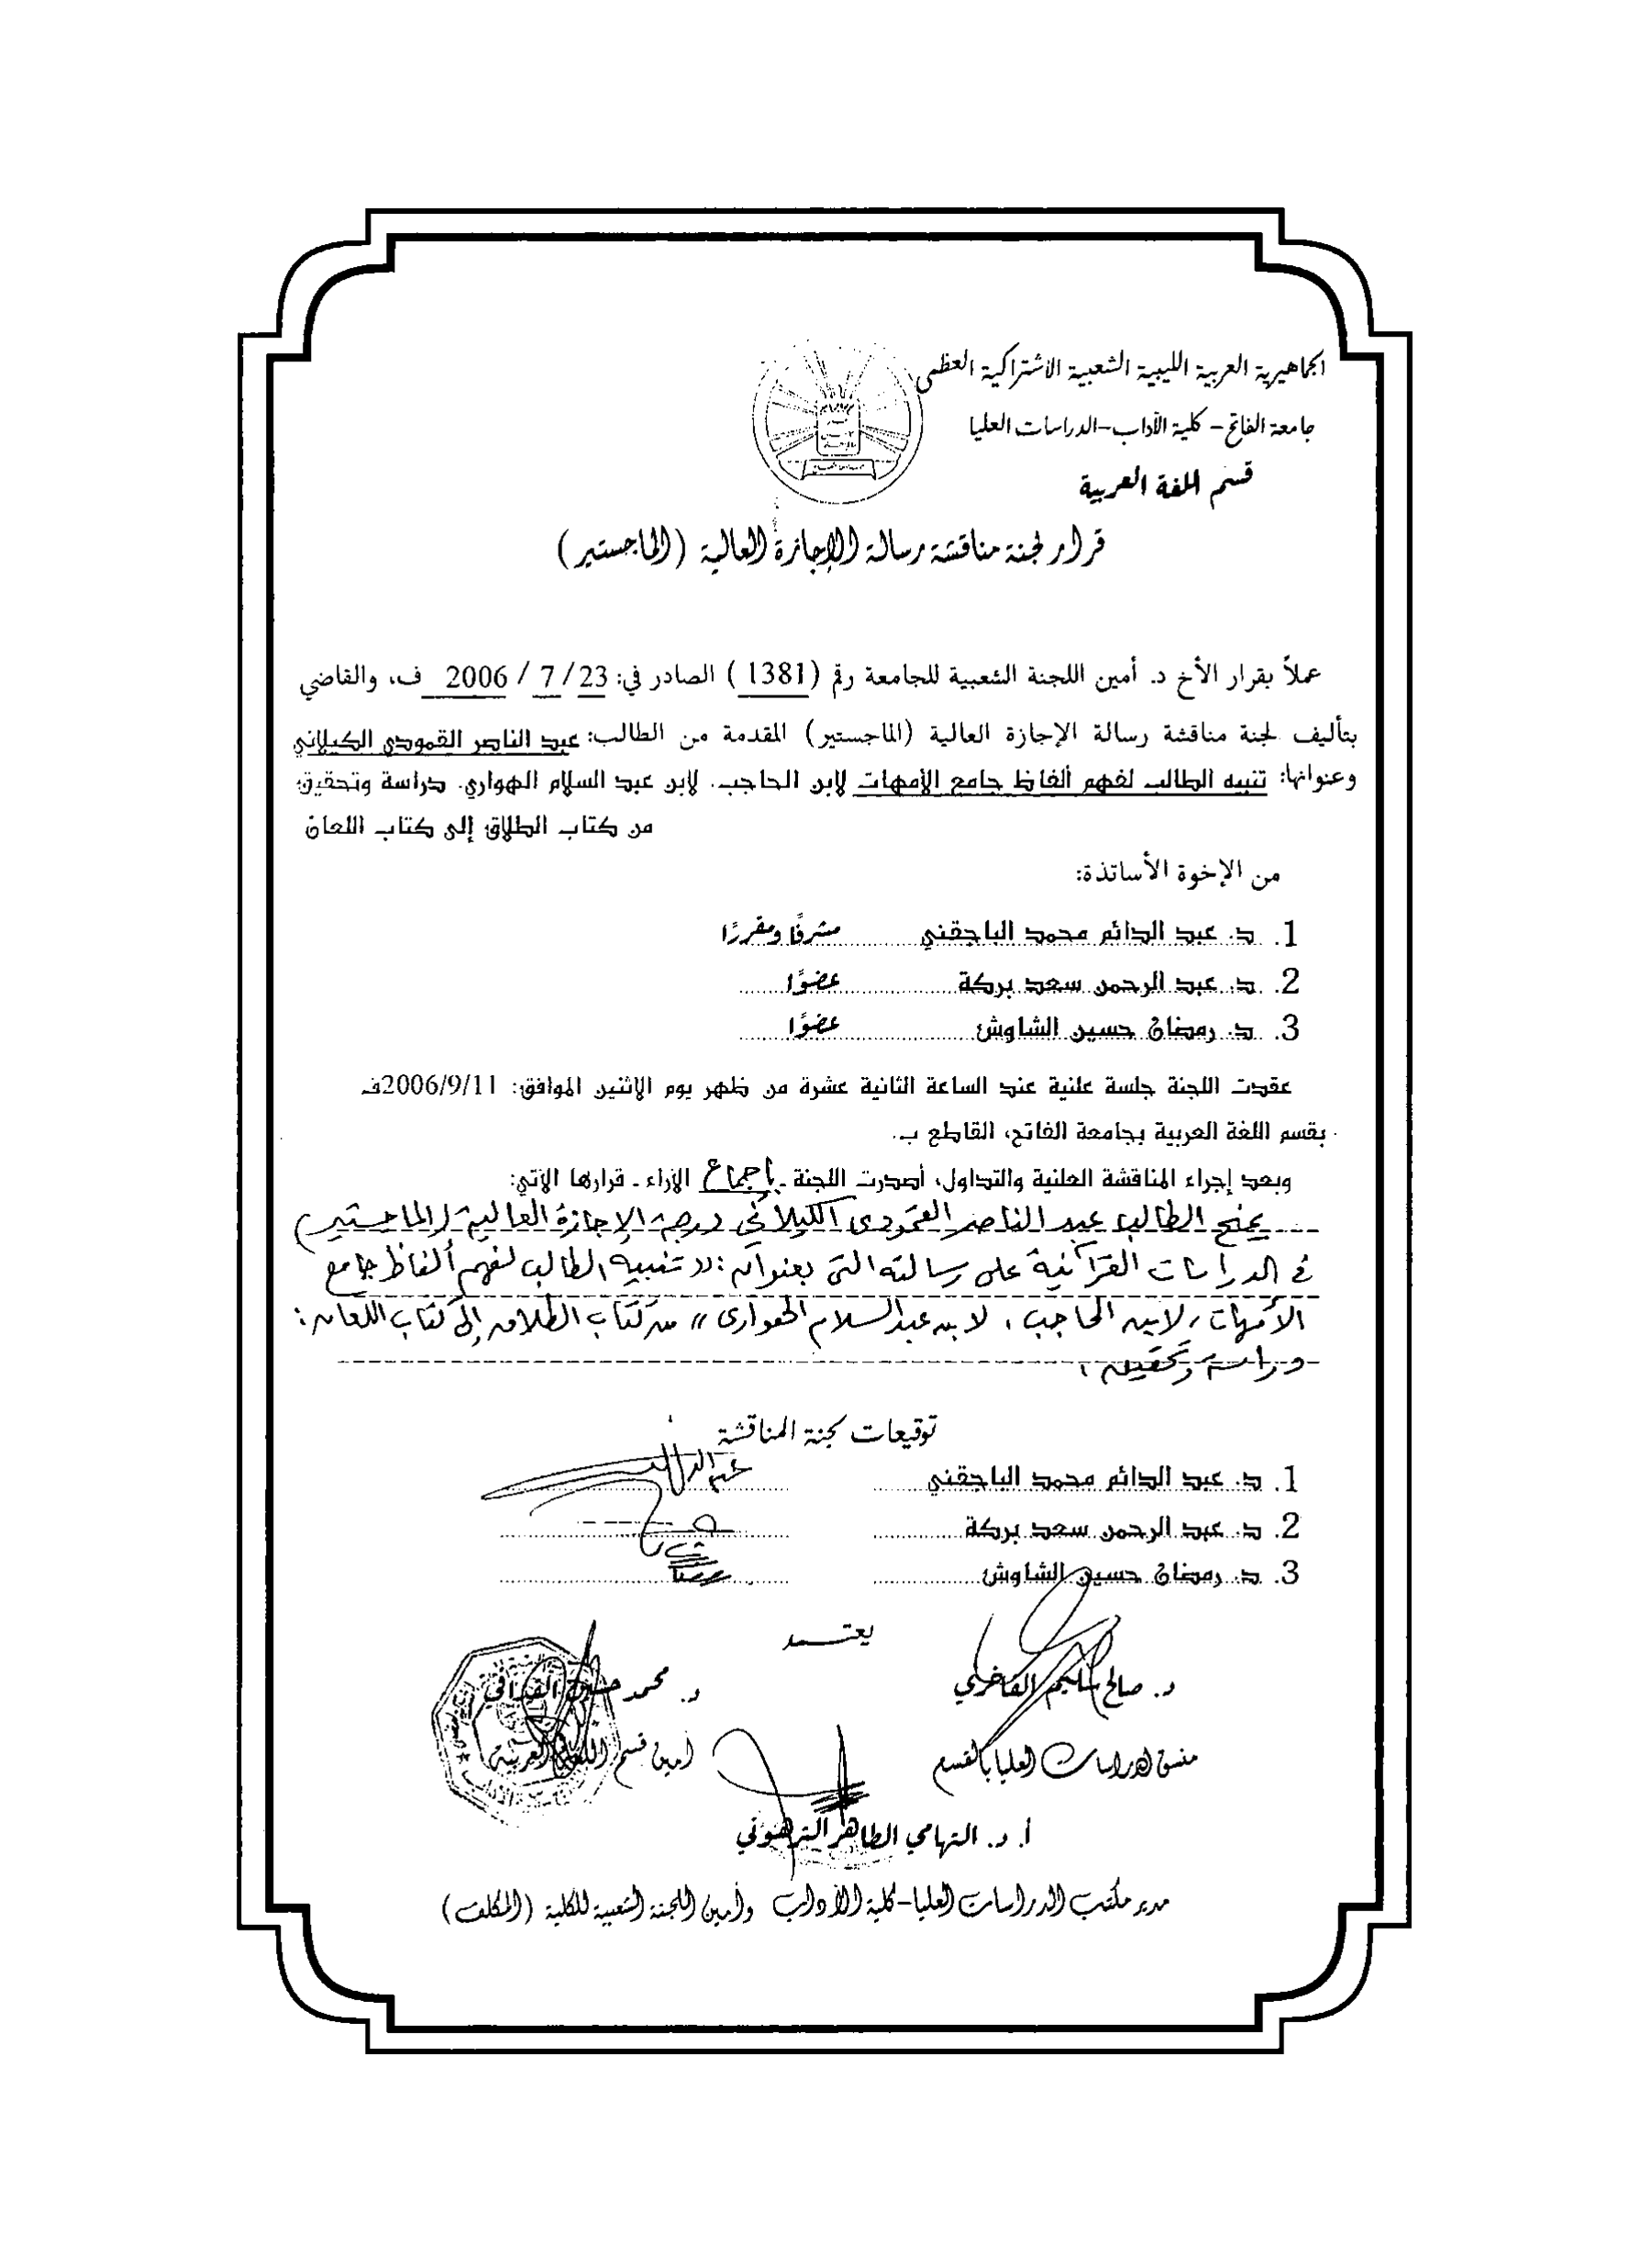 الجماهيرية العربية الليبية الشعبية الاشتراكية العظمى
جامعة الفاتح - كلية الآداب-الدراسات العليا
قسم اللغة العربية
قرار لجنة مناقشة رسالة الإجازة العالية (الماجستير)
عملاً بقرار الأخ د. أمين اللجنة الشعبية للجامعة رقم (1381) الصادر في: 23/ 7 / 2006 ف، والقاضي
بتأليف لجنة مناقشة رسالة الإجازة العالية (الماجستير) المقدمة من الطالب: عبد الناصر القمودي الكيلاني
وعنوانها: تنبيه الطالب لفهم ألفاظ جامع الأمهات لابن الحاجب. لابن عبد السلام الهواري. دراسة وتحقيق:
من كتاب الطلاق إلى كتاب اللعان
من الإخوة الأساتذة:
1. د. عبد الدائم محمد الباجقني مشرفًا ومقررًا
2. د. عبد الرحمن سعد بركة عضوًا
3. د. رمضان حسين الشاوش عضوًا
عقدت اللجنة جلسة علنية عند الساعة الثانية عشرة من ظهر يوم الاثنين الموافق: 2006/9/11ف
بقسم اللغة العربية بجامعة الفاتح، القاطع ب.
وبعد إجراء المناقشة العلنية والتداول، أصدرت اللجنة ـ بإجماع الآراء ـ قرارها الآتي:
يمنح الطالب عبد الناصر القمودي الكيلاني درجة الإجازة العالية (الماجستير)
في الدراسات القرآنية على رسالته التي بعنوان: (( تنبيه الطالب لفهم ألفاظ جامع
الأمهات، لابن الحاجب، لابن عبد السلام الهواري )) من كتاب الطلاق إلى كتاب اللعان:
دراسة وتحقيق.
توقيعات لجنة المناقشة
1. د. عبد الدائم محمد الباجقني
2. د. عبد الرحمن سعد بركة
3. د. رمضان حسين الشاوش
يعتمد
د. صالح سليم الفاخري د. محمد القذافي
منسق الدراسات العليا بالقسم أمين قسم اللغة العربية
أ. د. التهامي الطاهر الترهوني
مدير مكتب الدراسات العليا-كلية الآداب وأمين اللجنة الشعبية للكلية (المكلف)